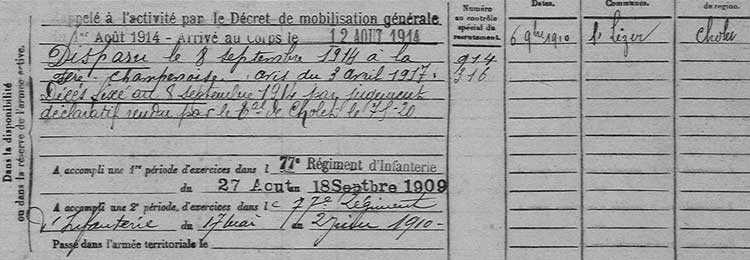 Rappelé à l'activité par le Décret de mobilisation générale
du 1er Août 1914 - Arrivé au Corps le 12 AOUT 1914
Disparu le 8 septembre 1914 à la
Fère-Champenoise. avis du 3 avril 1917.
Décès fixé au 8 septembre 1914 par jugement
déclaratif rendu par le Bal de Cholet le 7-5-20
Dans la disponibilité
ou dans la réserve de l'armée active.
A accompli une 1re période d'exercices dans l 77e Régiment d'Infanterie
du 27 Aout au 18 Septbre 1909
A accompli une 2e période, d'exercices dans le 77e Régiment
d'Infanterie du 17 mai au 2 juin 1910-
Passé dans l'armée territoriale le
Numéro
au contrôle
spécial du
recrutement.
914
316
Dates.
6 9bre 1910
Communes.
St Lézer
de région.
Cholet